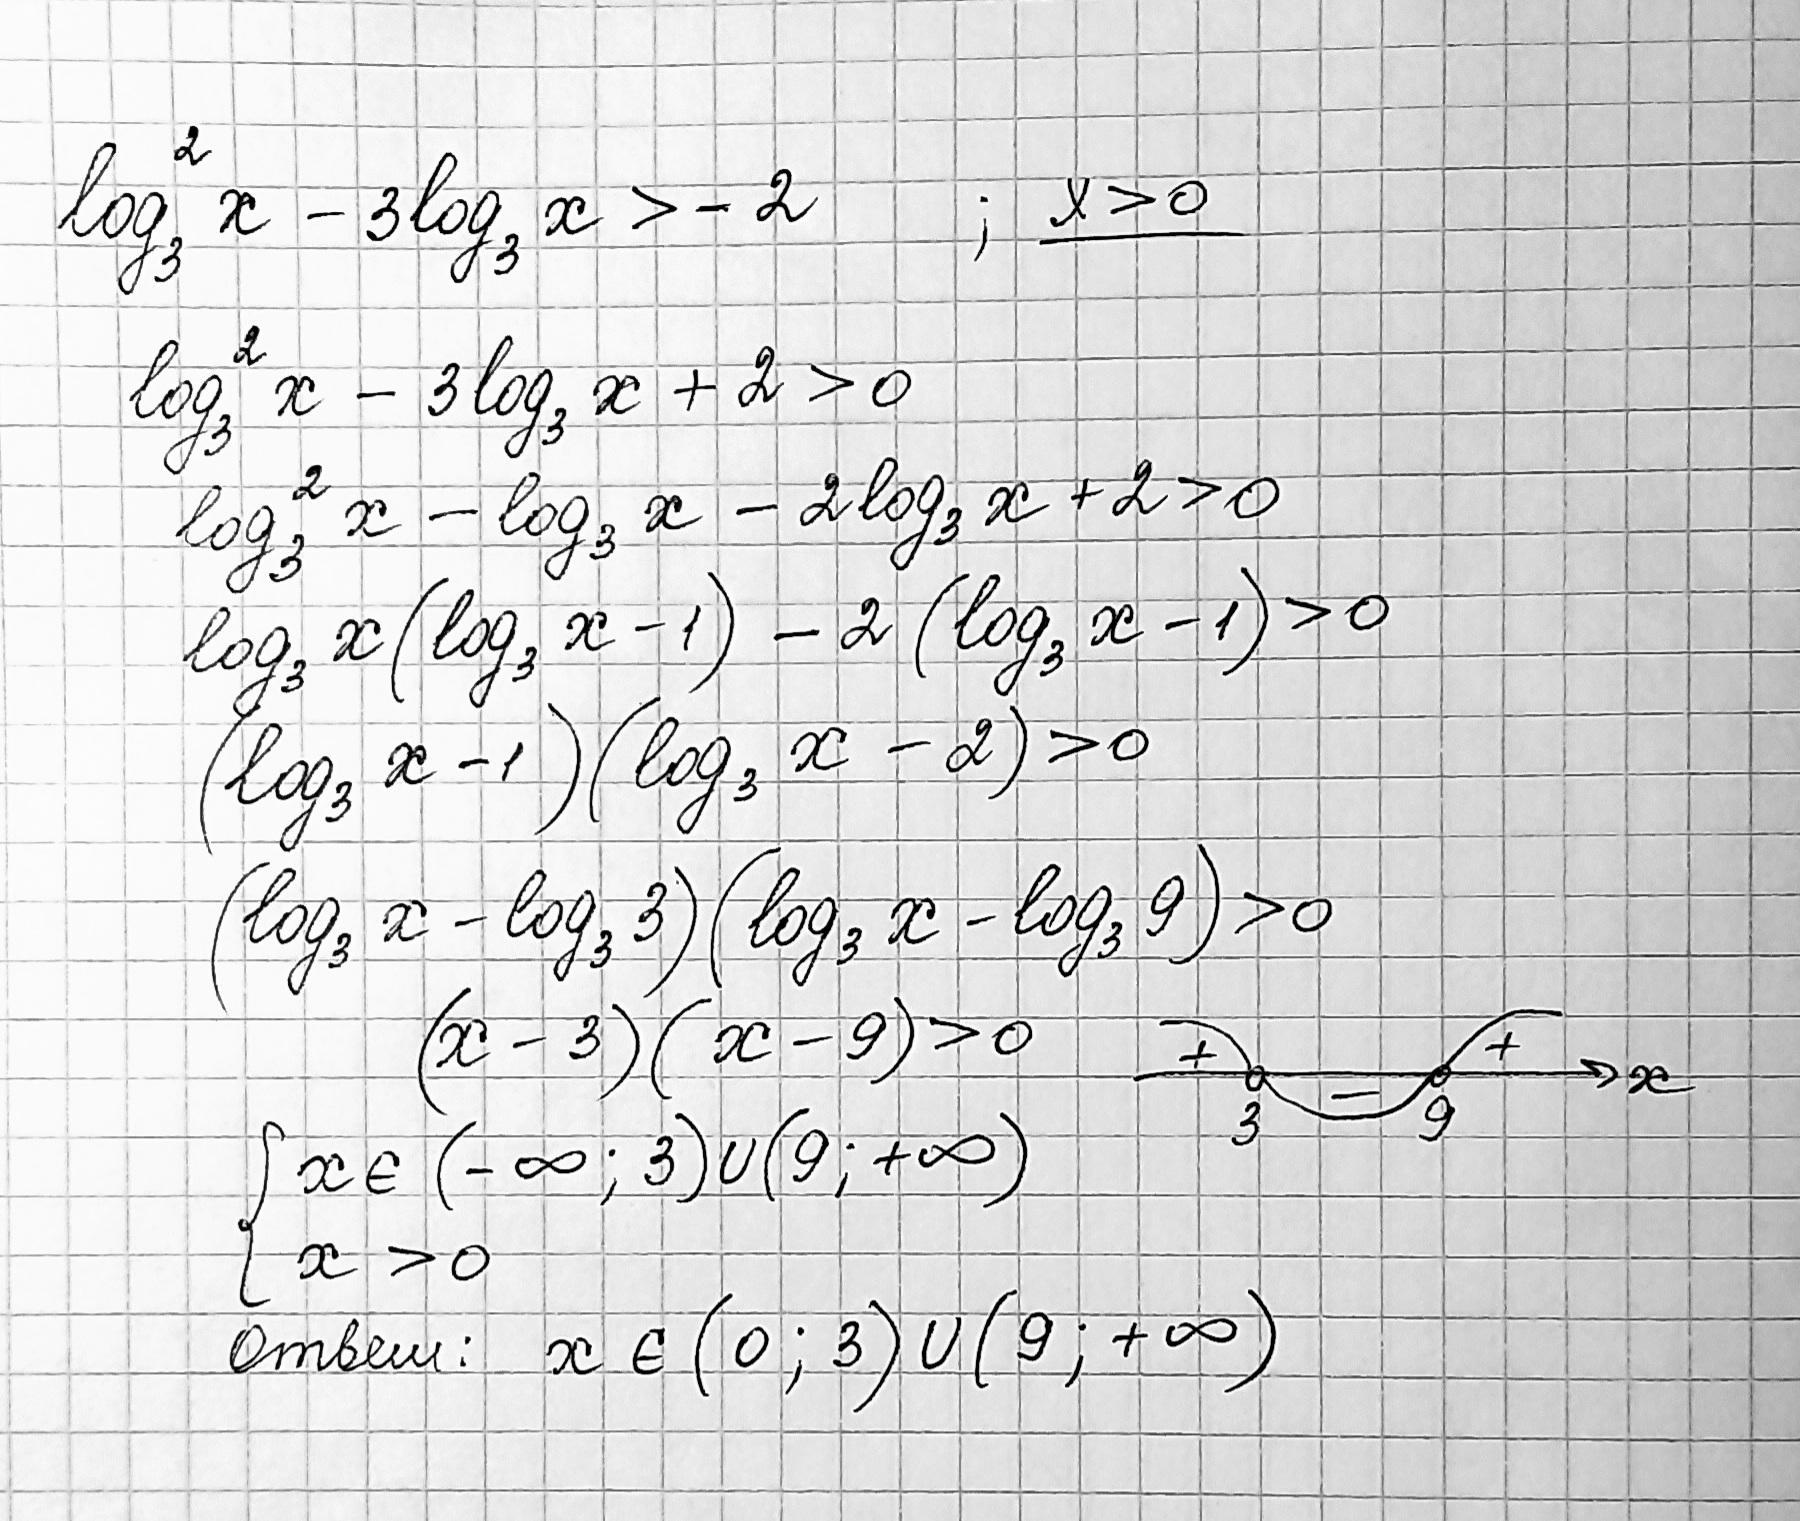 log₃² x − 3log₃ x > −2 ; x > 0
log₃² x − 3log₃ x + 2 > 0
log₃² x − log₃ x − 2log₃ x + 2 > 0
log₃ x (log₃ x − 1) − 2 (log₃ x − 1) > 0
(log₃ x − 1)(log₃ x − 2) > 0
(log₃ x − log₃ 3)(log₃ x − log₃ 9) > 0
(x − 3)(x − 9) > 0
+ − + x
3 9
{ x ∈ (−∞; 3) ∪ (9; +∞)
x > 0
Ответ: x ∈ (0; 3) ∪ (9; +∞)